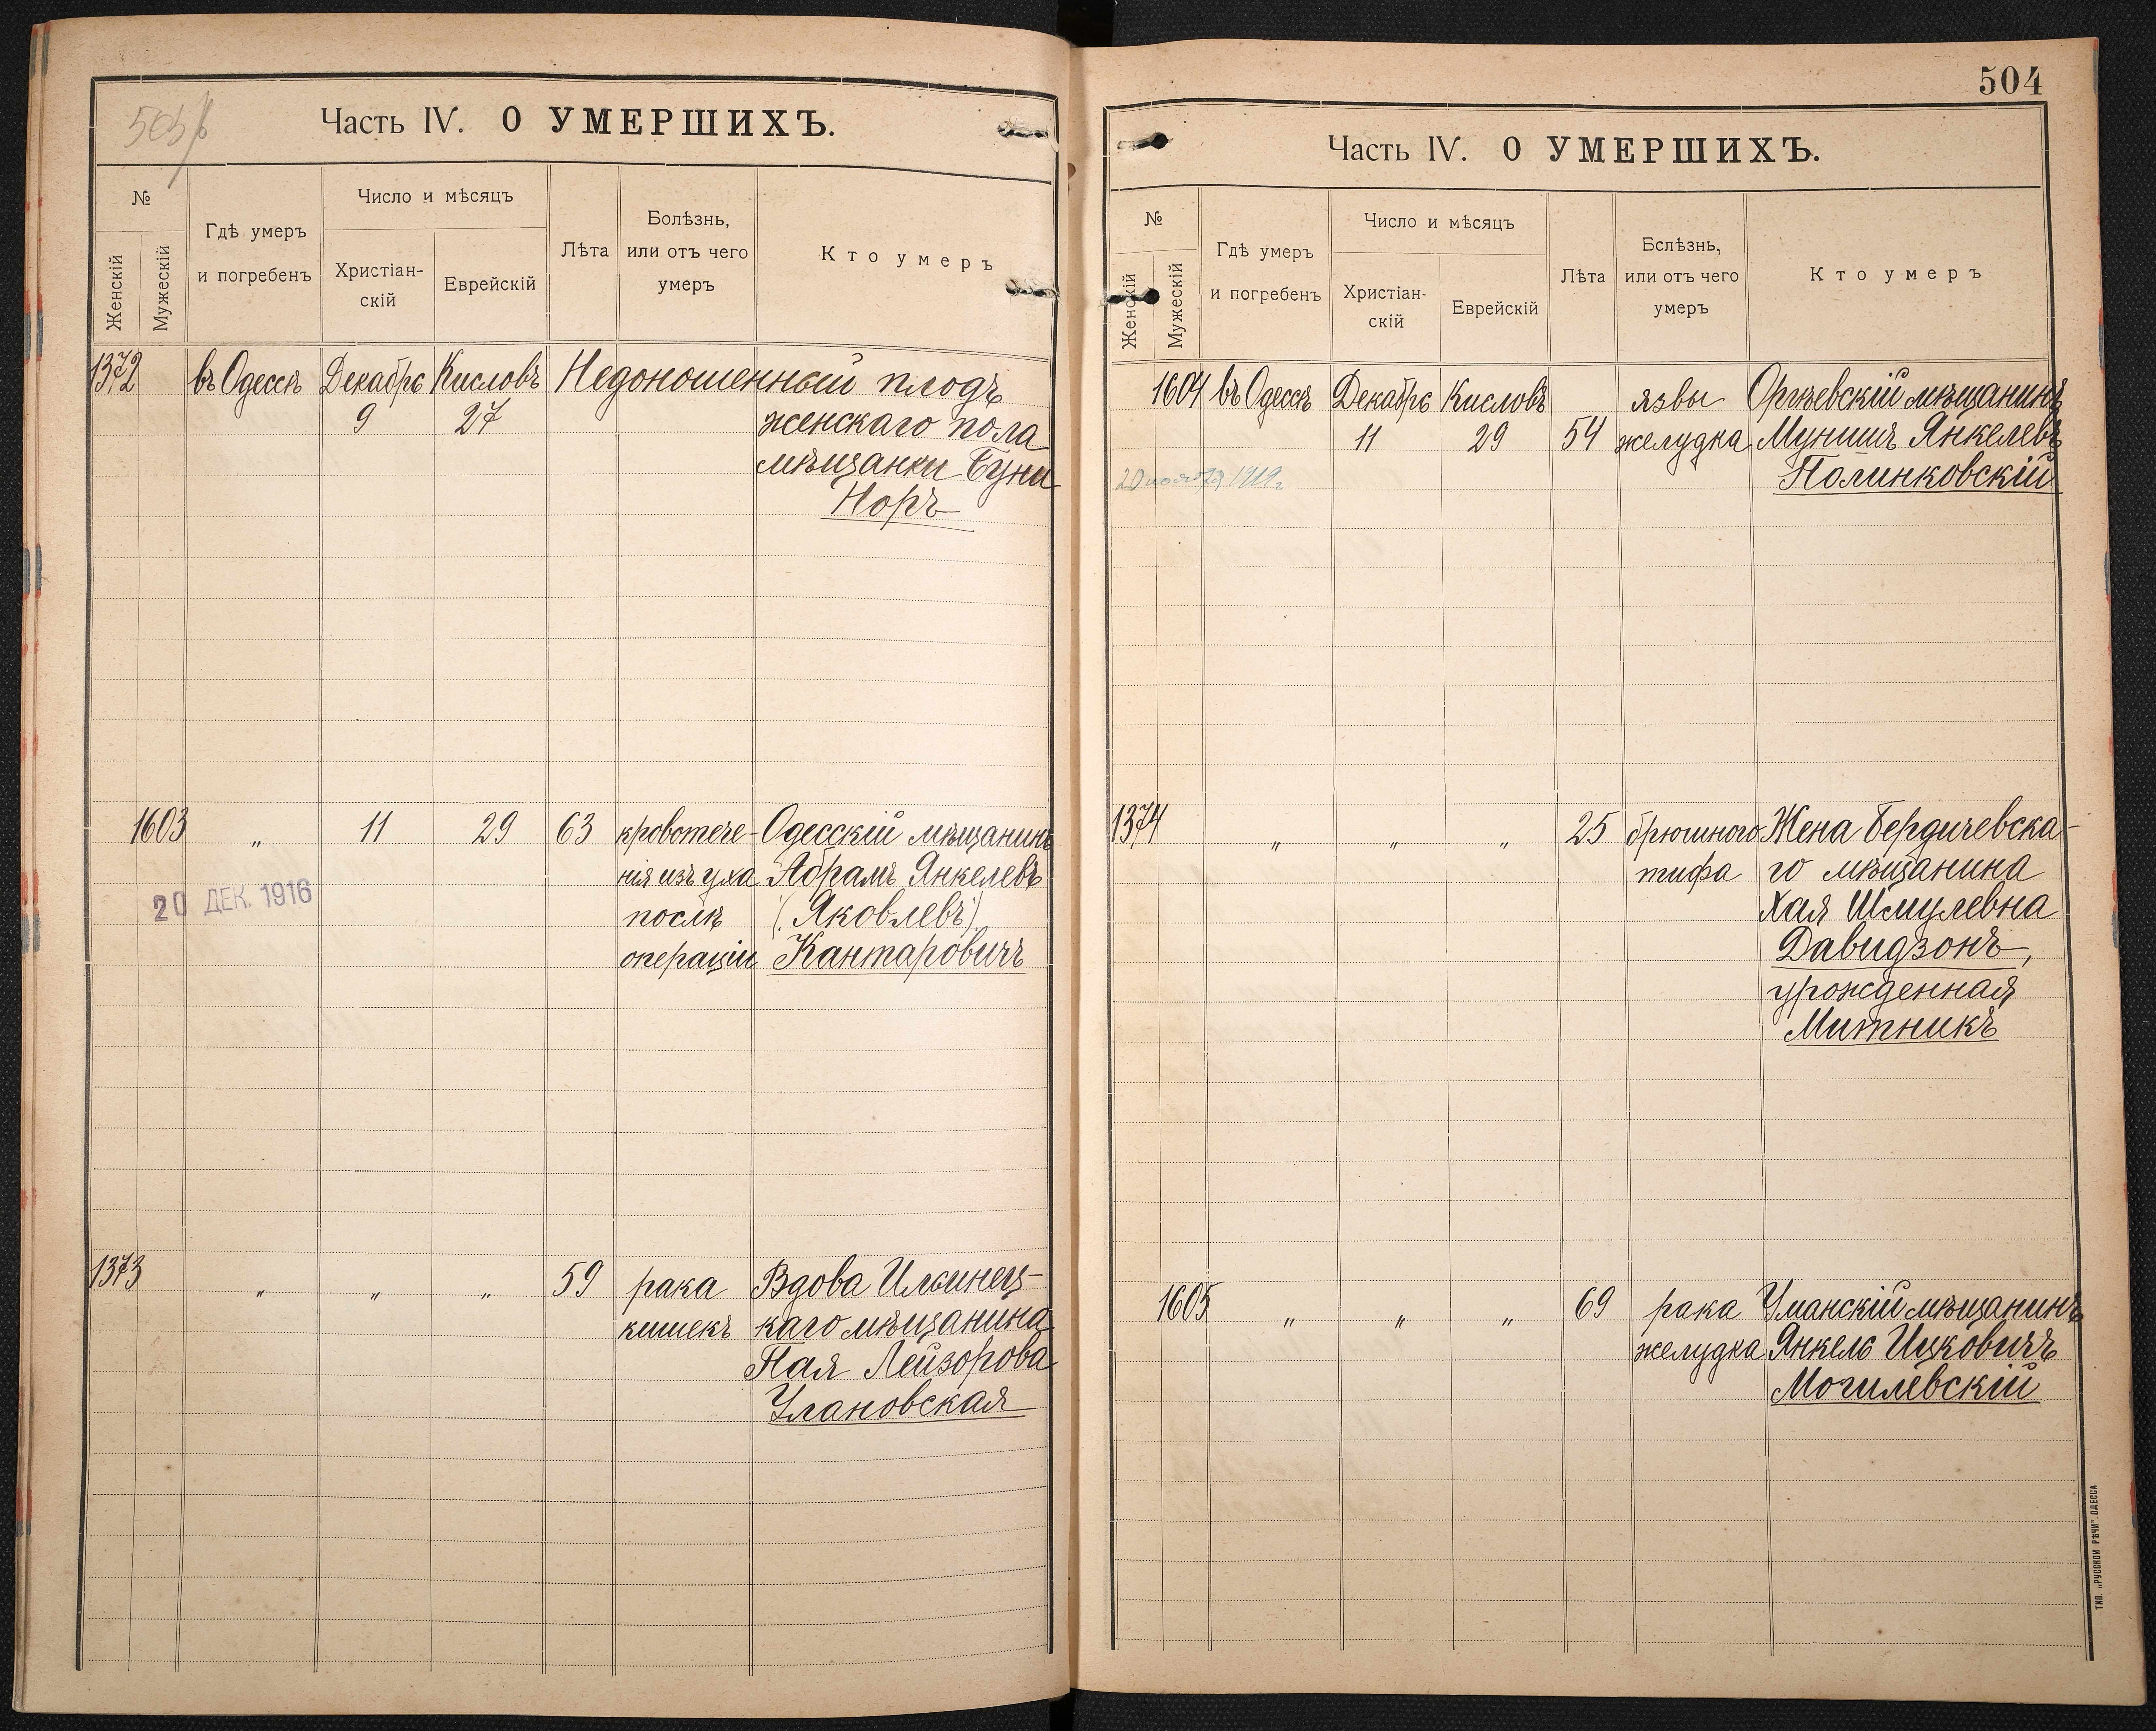 503 b
Часть IV. О УМЕРШИХЪ.
№
Женскій
Мужескій
Гдѣ умеръ
и погребенъ
Число и мѣсяцъ
Христіан-
скій
Еврейскій
Лѣта
Болѣзнь,
или отъ чего
умеръ
Кто умеръ
1372 въ Одессѣ Декабрь Кисловъ Недоношенный плодъ
9 27 женскаго пола
мѣщанки Буни
Норъ
1603 " 11 29 63 кровотече- Одесскій мѣщанинъ
нія изъ уха Абрамъ Янкелевъ
20 ДЕК. 1916
послѣ (Яковлевъ)
операціи Кантаровичъ
1373 " " " 59 рака Вдова Ильинец-
кишекъ каго мѣщанина
Пая Лейзорова
Улановская
504
Часть IV. О УМЕРШИХЪ.
№
Женскій
Мужескій
Гдѣ умеръ
и погребенъ
Число и мѣсяцъ
Христіан-
скій
Еврейскій
Лѣта
Бслѣзнь,
или отъ чего
умеръ
Кто умеръ
1604 въ Одессѣ Декабрь Кисловъ язвы Оргѣевскій мѣщанинъ
11 29 54 желудка Мунишъ Янкелевъ
20 ноября 1919 г.
Полинковскій
1374 " " " 25 брюшного Жена Бердичевска-
тифа го мѣщанина
Хая Шмулевна
Давидзонъ,
урожденная
Митникъ
1605 " " " 69 рака Уманскій мѣщанинъ
желудка Янкель Ицковичъ
Могилевскій
ТИП. „РУССКОЙ РѢЧИ“ ОДЕССА